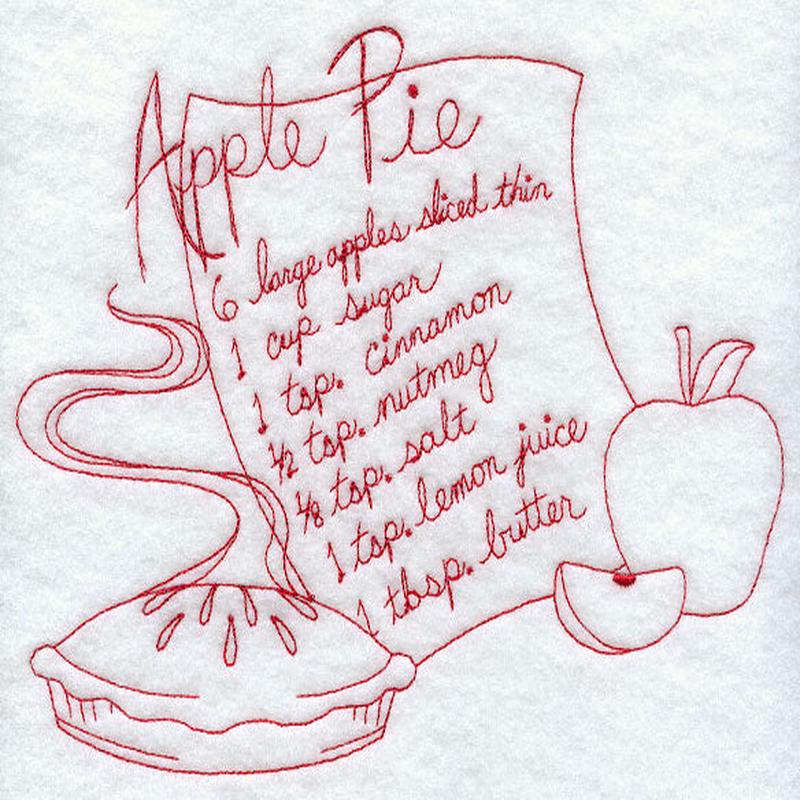 Apple Pie
6 large apples sliced thin
1 cup sugar
1 tsp. cinnamon
1/2 tsp. nutmeg
1/8 tsp. salt
1 tsp. lemon juice
1 tbsp. butter